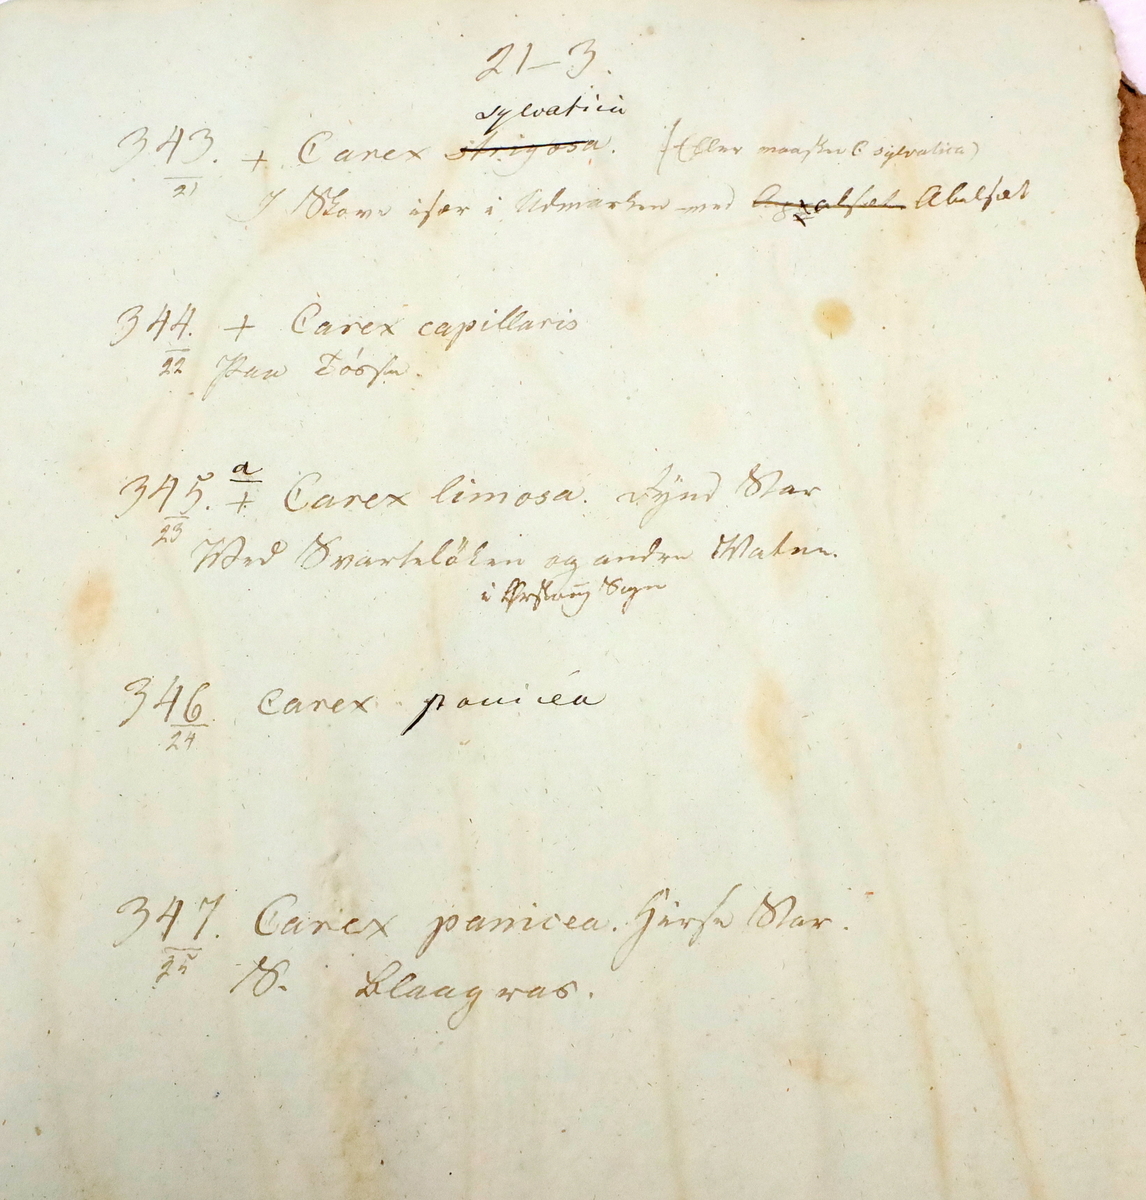 21-3.
sylvatica
343. + Carex strigosa. (Eller maaskee C sylvatica)
21
I Skove især i Udmarken ved Abelsæt
344. + Carex capillaris
22 Paa Tósse.
a
345. + Carex limosa. Dynd Star
23
Ved Svartelöken og andre Vatne.
i Ørskoug Sogn
346 Carex panicéa
24
347. Carex panicea. Hirse Star.
25
S. Blaagras.